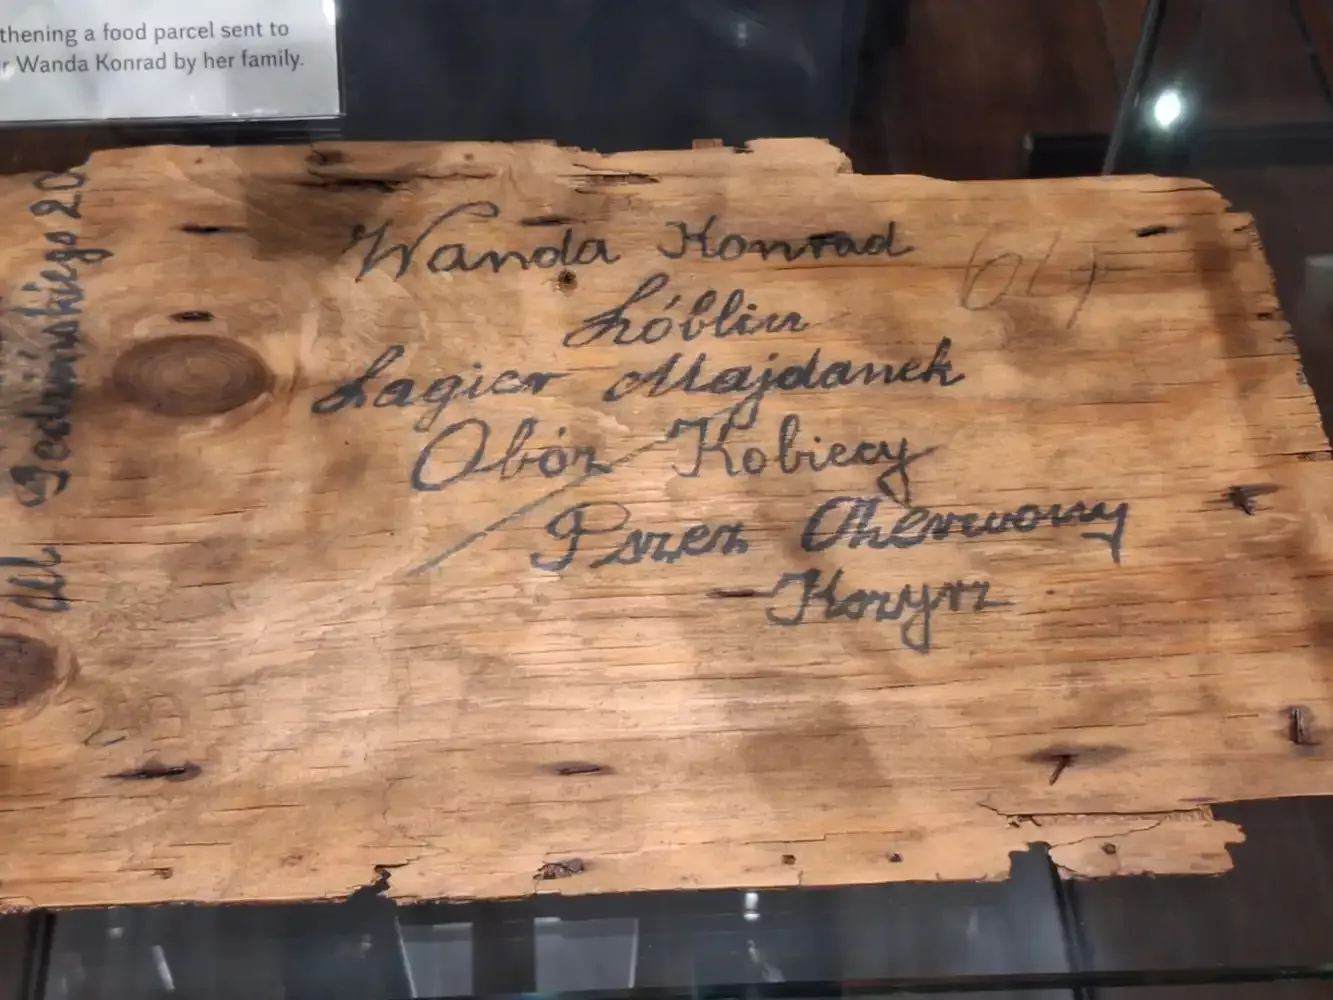 thening a food parcel sent to
r Wanda Konrad by her family.
Wanda Konrad
64
Lóblin
Lagier Majdanek
Obóz Kobiecy
Przez Czerwony
Krzyrz
Ul
20